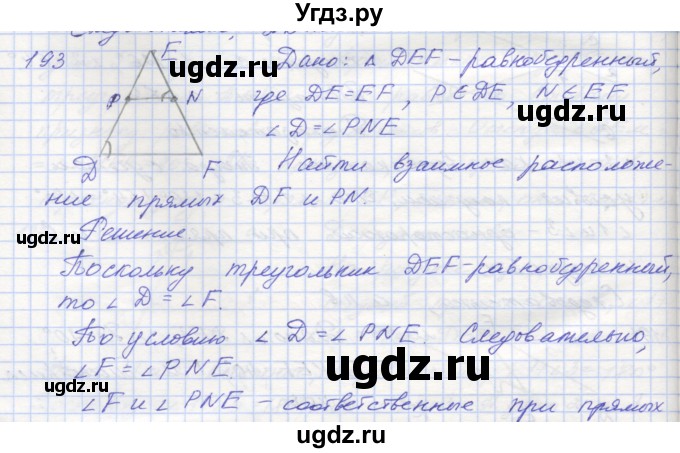 Угдз.ру
193
E
Дано: Δ DEF - равнобедренный,
P N
где DE=EF, P∈DE, N∈EF
∠D=∠PNE
D F
Найти взаимное расположе-
ние прямых DF и PN.
Решение.
Поскольку треугольник DEF-равнобедренный,
то ∠D=∠F.
По условию ∠D=∠PNE. Следовательно,
∠F=∠PNE.
∠F и ∠PNE - соответственные при прямых
ugdz.ru
ugdz.ru
ugdz.ru
ugdz.ru
ugdz.ru
ugdz.ru
ugdz.ru
ugdz.ru